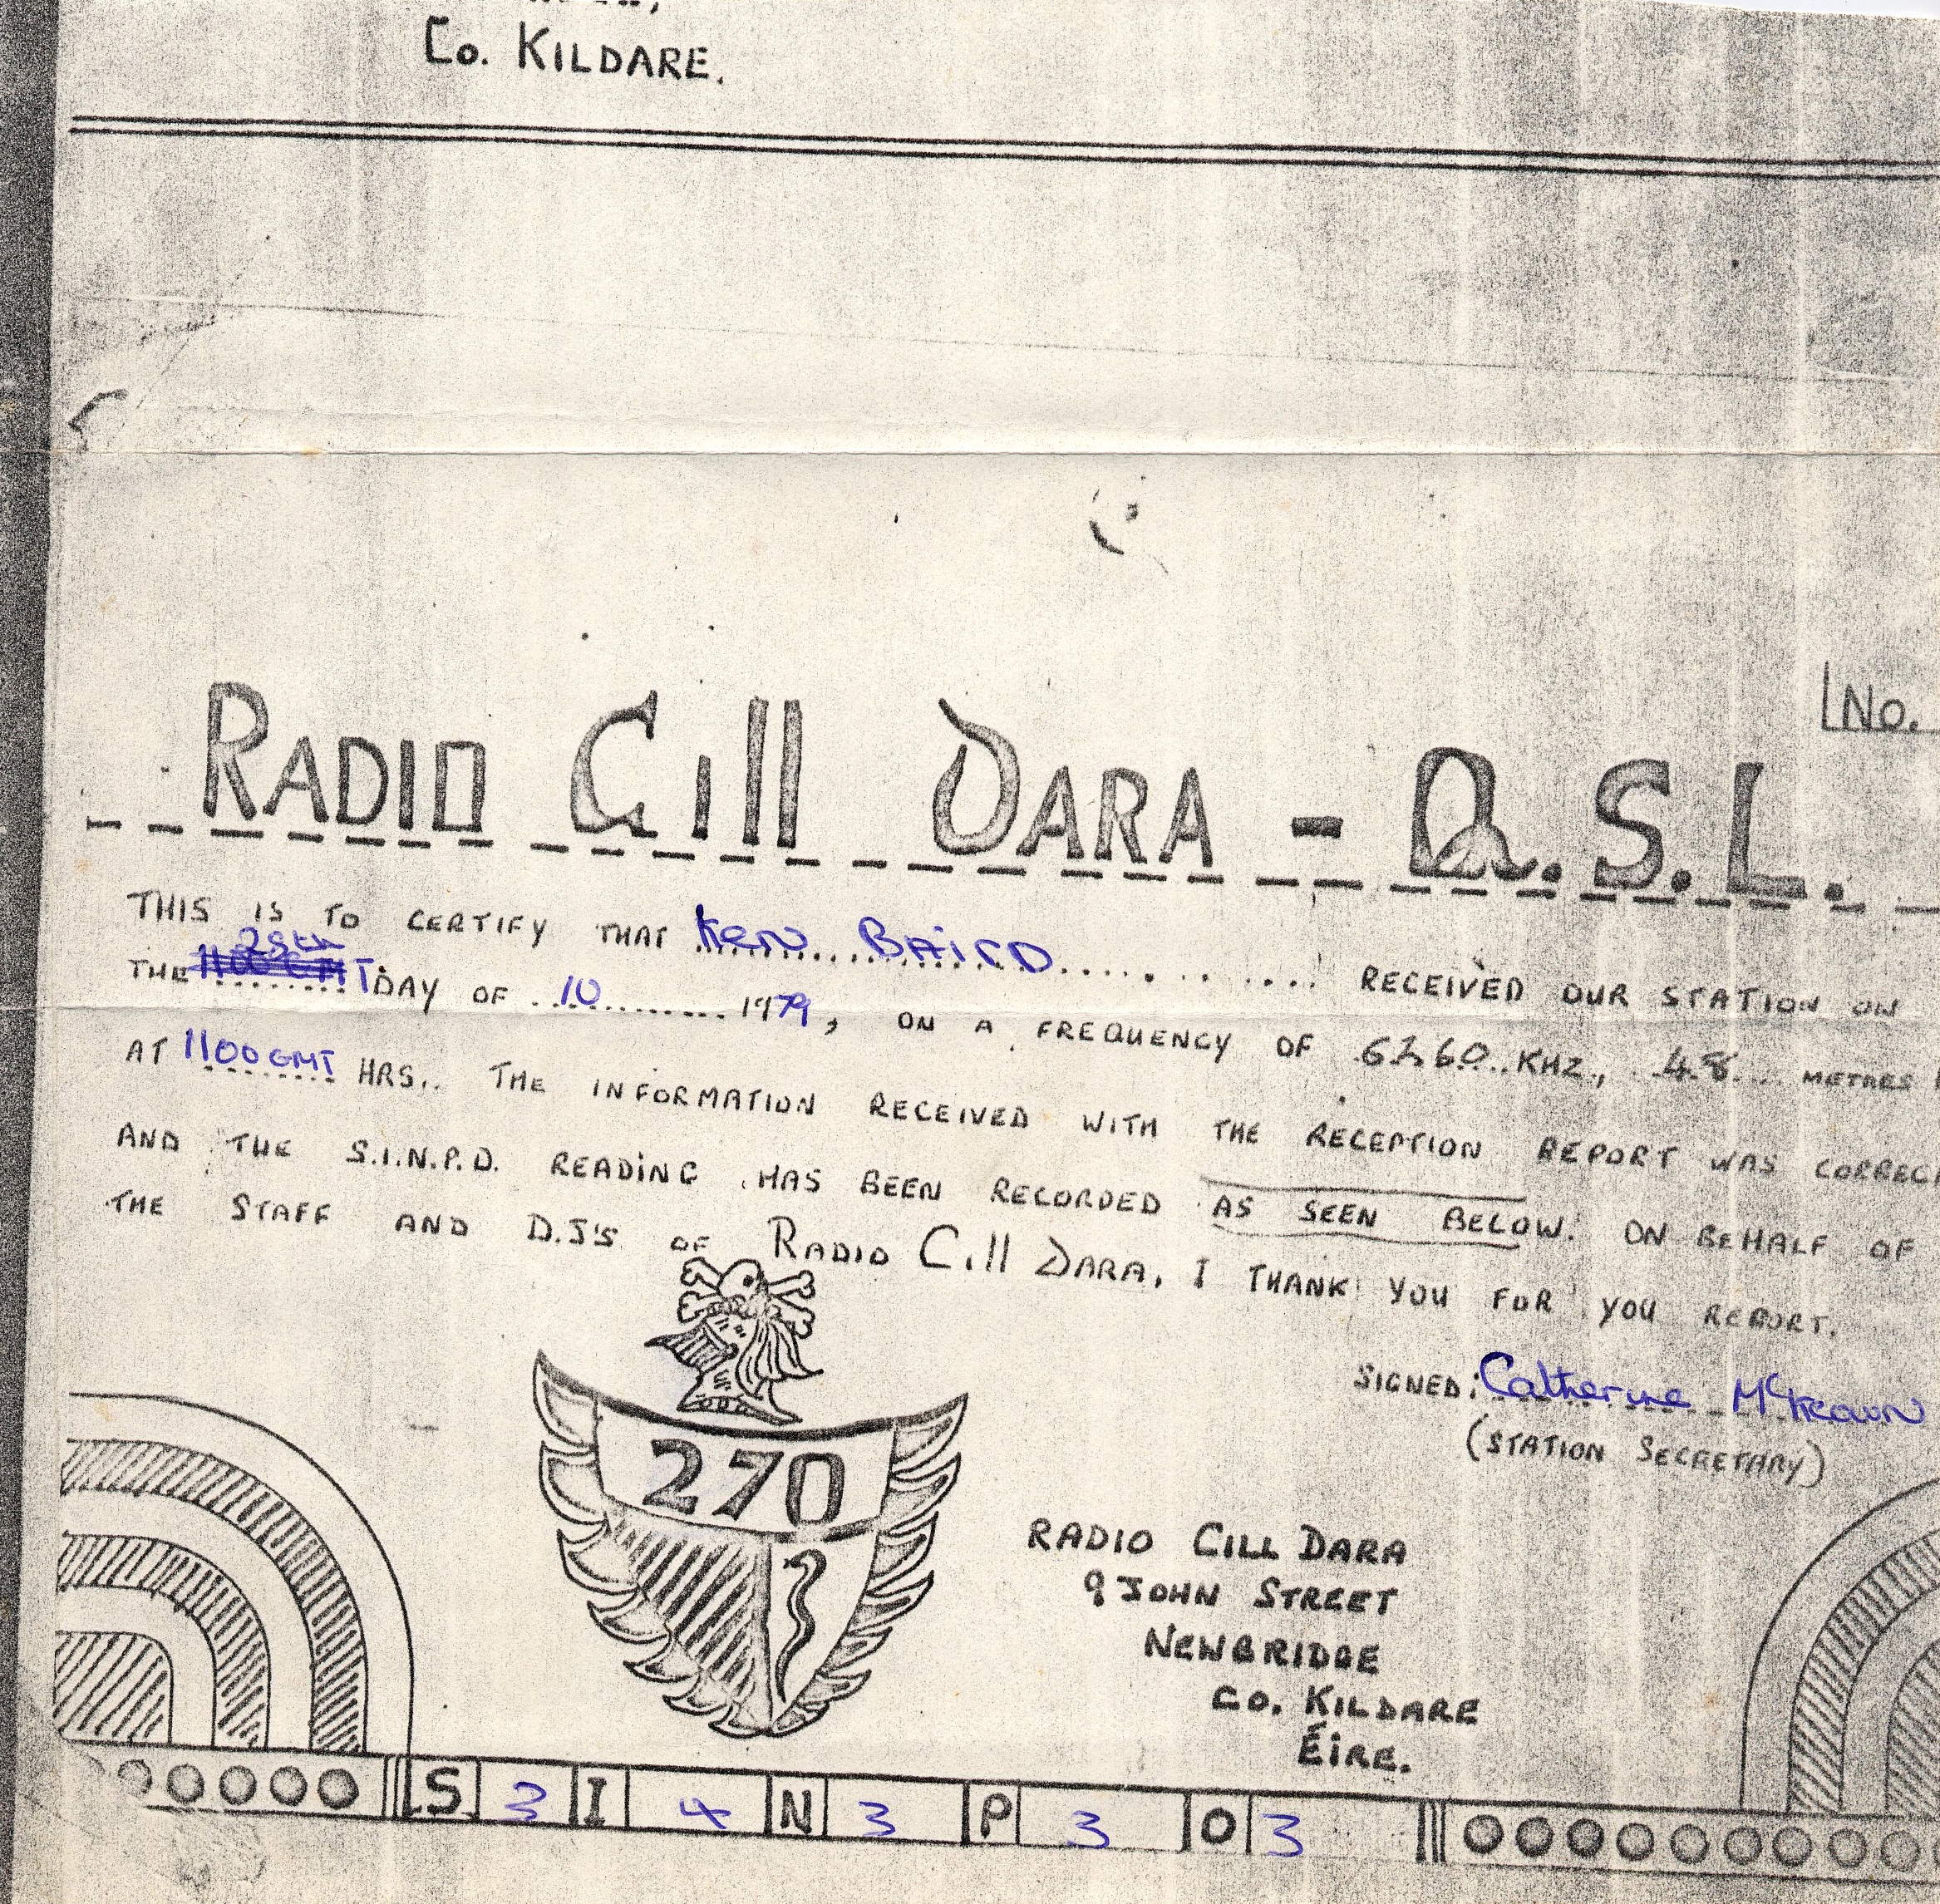 Co. KILDARE.
No.
RADIO Cill DARA - Q.S.L.
THIS IS TO CERTIFY THAT Ken BAIRD RECEIVED OUR STATION ON
28th
THE 1100 GMT DAY OF 10 1979, ON A FREQUENCY OF 6260 KHZ., 48 METRES
AT 1100 GMT HRS.. THE INFORMATION RECEIVED WITH THE RECEPTION REPORT WAS CORREC
AND THE S.I.N.P.O. READING HAS BEEN RECORDED AS SEEN BELOW. ON BEHALF OF
THE STAFF AND D.J'S OF RADIO Cill DARA, I THANK YOU FOR YOU REPORT.
SIGNED: Catherine McKeown
(STATION SECRETARY)
270
RADIO CILL DARA
9 JOHN STREET
NEWBRIDGE
CO. KILDARE
ÉIRE.
S 3 I 4 N 3 P 3 O 3